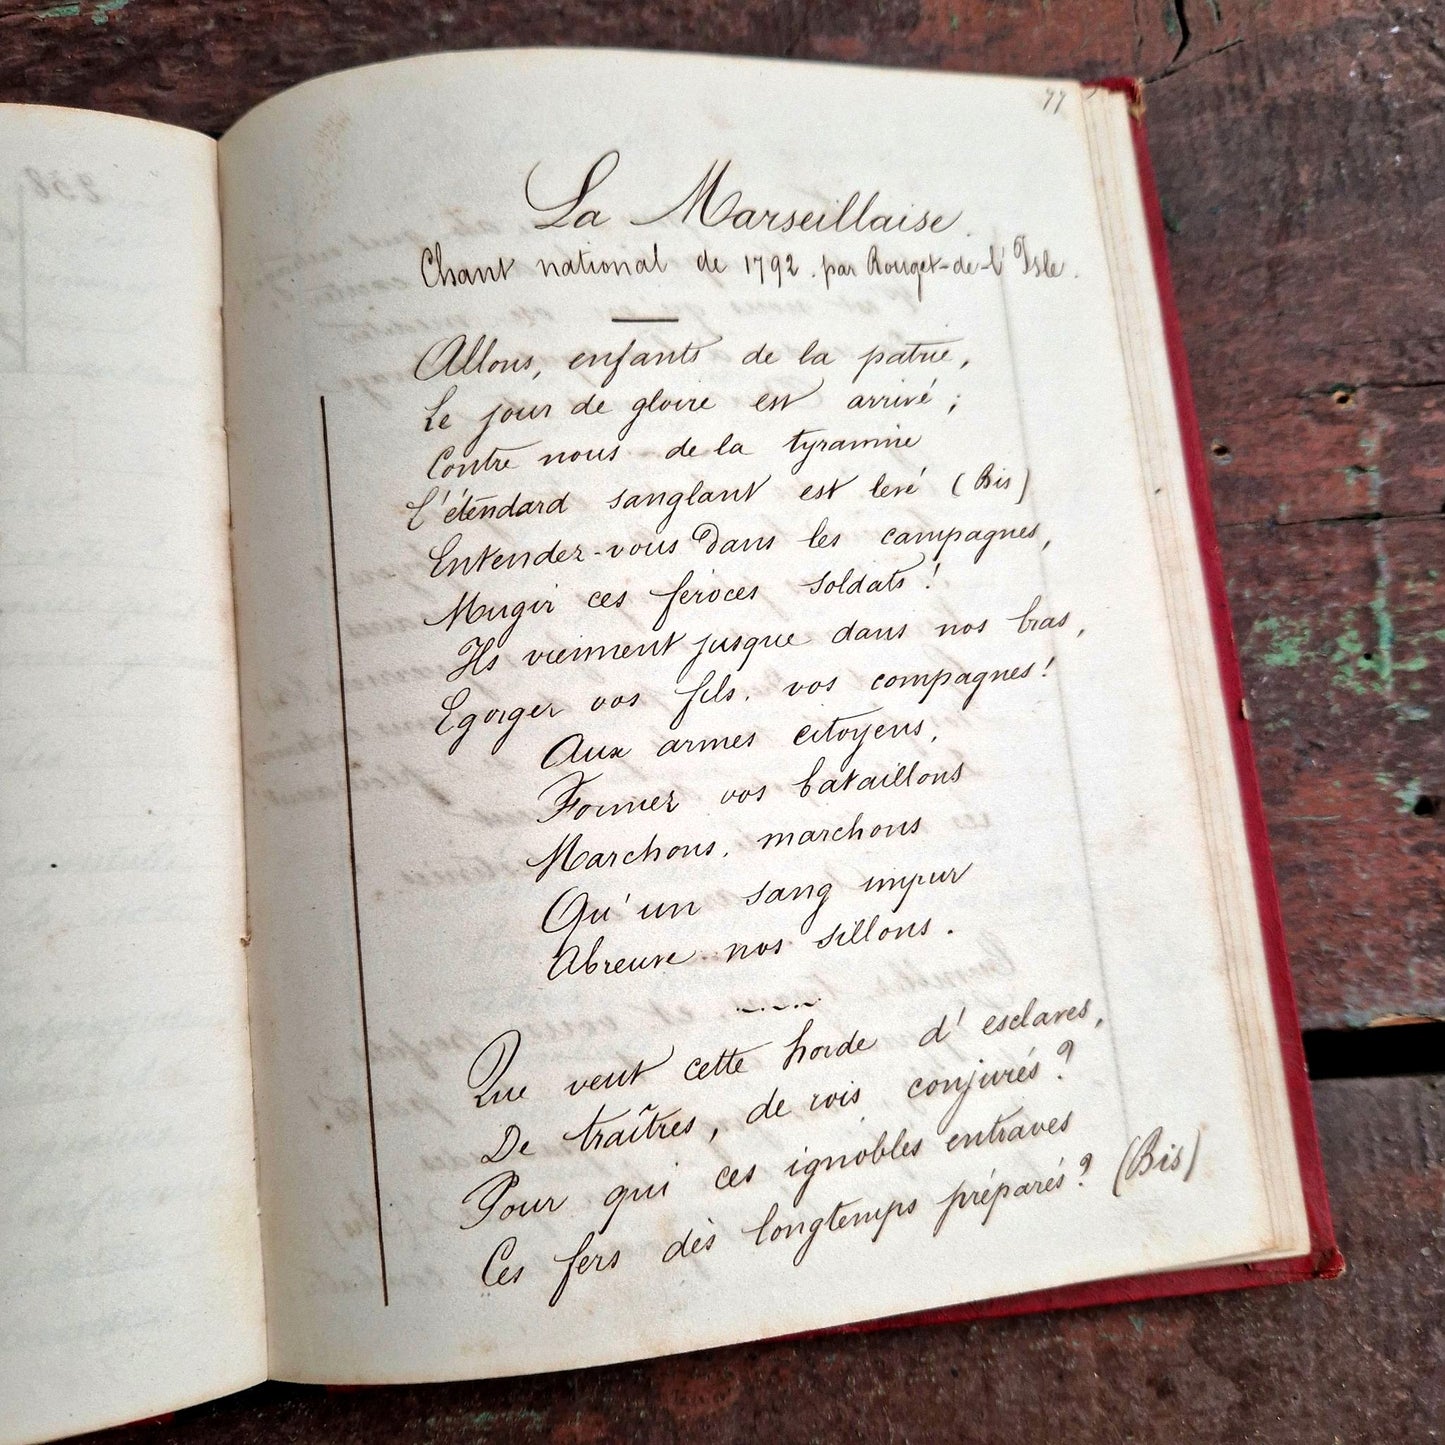 77
La Marseillaise.
Chant national de 1792. par Rouget-de-l'Isle.
Allons, enfants de la patrie,
Le jour de gloire est arrivé ;
Contre nous de la tyrannie
L'étendard sanglant est levé (Bis)
Entendez-vous dans les campagnes,
Mugir ces féroces soldats !
Ils viennent jusque dans nos bras,
Egorger vos fils. vos compagnes !
Aux armes citoyens,
Formez vos bataillons
Marchons, marchons
Qu'un sang impur
Abreuve nos sillons.
Que veut cette horde d'esclaves,
De traîtres, de rois conjurés ?
Pour qui ces ignobles entraves
Ces fers dès longtemps préparés ? (Bis)
238